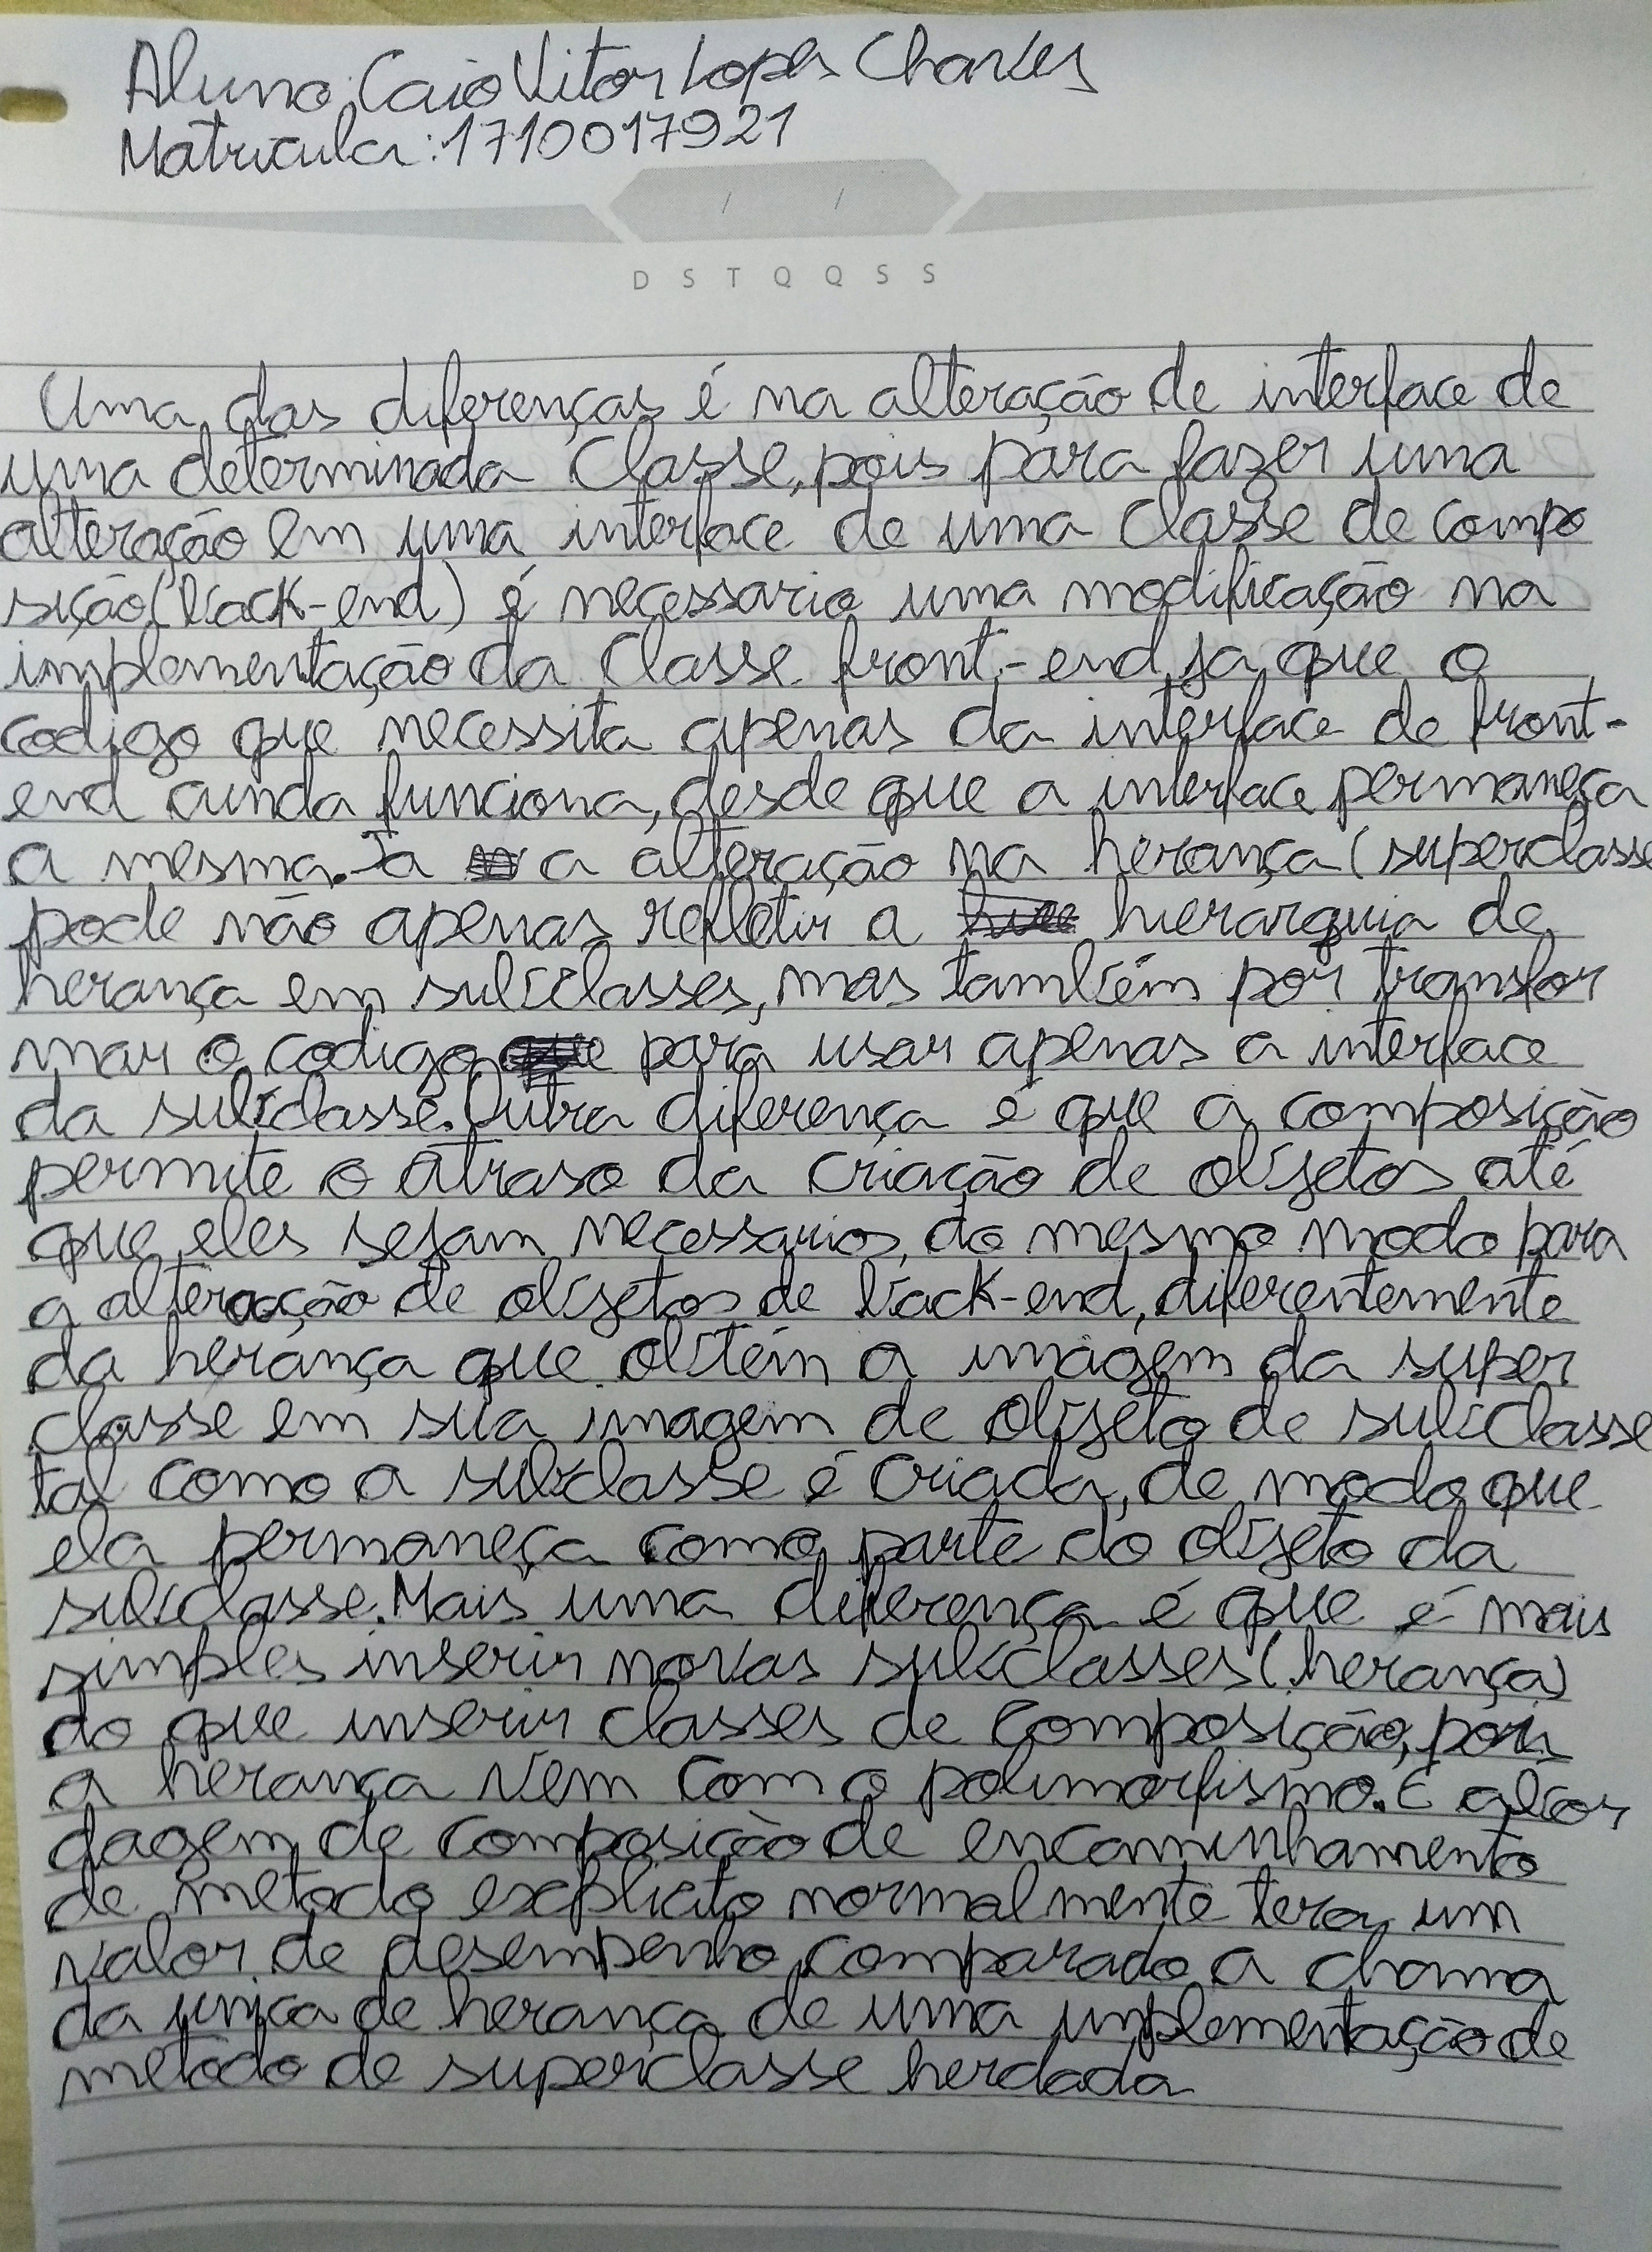 Aluno: Caio Vitor Lopes Charles
Matricula: 1710017921
/ /
D S T Q Q S S
Uma das diferenças é na alteração de interface de
uma determinada Classe, pois para fazer uma
alteração em uma interface de uma Classe de compo
sição(back-end) é necessario uma modificação na
implementação da Classe front-end, ja que o
codigo que necessita apenas da interface de front-
end ainda funciona, desde que a interface permaneça
a mesma. Ja a alteração na herança (superclasse
pode não apenas refletir a hierarquia de
herança em subclasses, mas também por transfor
mar o codigo para usar apenas a interface
da subclasse. Outra diferença é que a composição
permite o atraso da criação de objetos até
que eles sejam necessarios, do mesmo modo para
a alteração de objetos de back-end, diferentemente
da herança que obtém a imagem da super
classe em sua imagem de objeto de subclasse
tal como a subclasse é criada, de modo que
ela permaneça como parte do objeto da
subclasse. Mais uma diferença é que é mais
simples inserir novas subclasses (herança)
do que inserir classes de composição, pois
a herança vem com o polimorfismo. E abor
dagem de composição de encaminhamento
de metodo explicito normalmente tera um
valor de desempenho comparado a chama
da unica de herança de uma implementação de
metodo de superclasse herdada